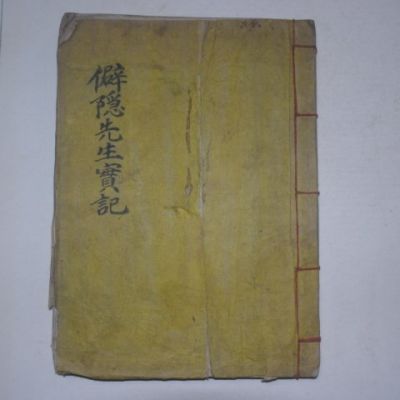 僻隠先生實記